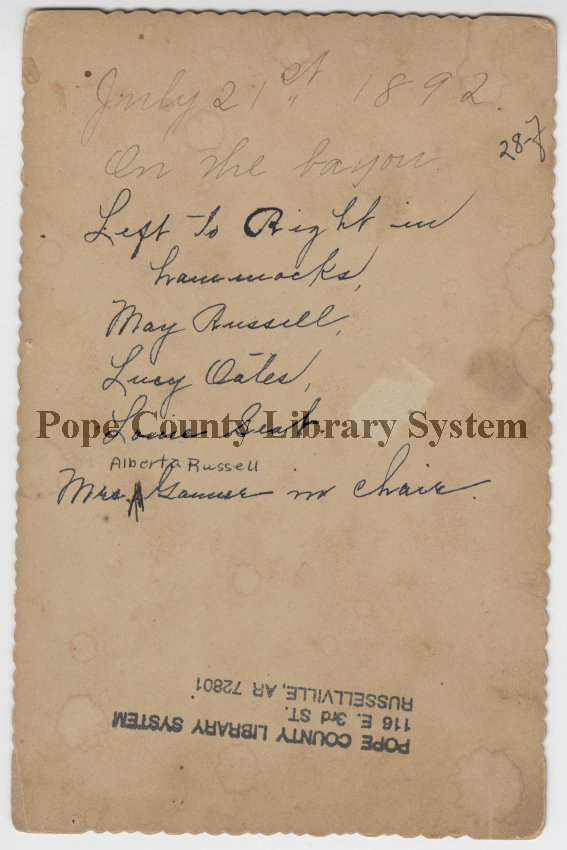 July 21st 1892.
28-7
On the bayou
Left to Right in
hammocks,
May Russell,
Lucy Oates,
Pope County Library System
Alberta Russell
Mrs. in chair.
POPE COUNTY LIBRARY SYSTEM
116 E. 3rd ST.
RUSSELLVILLE, AR 72801